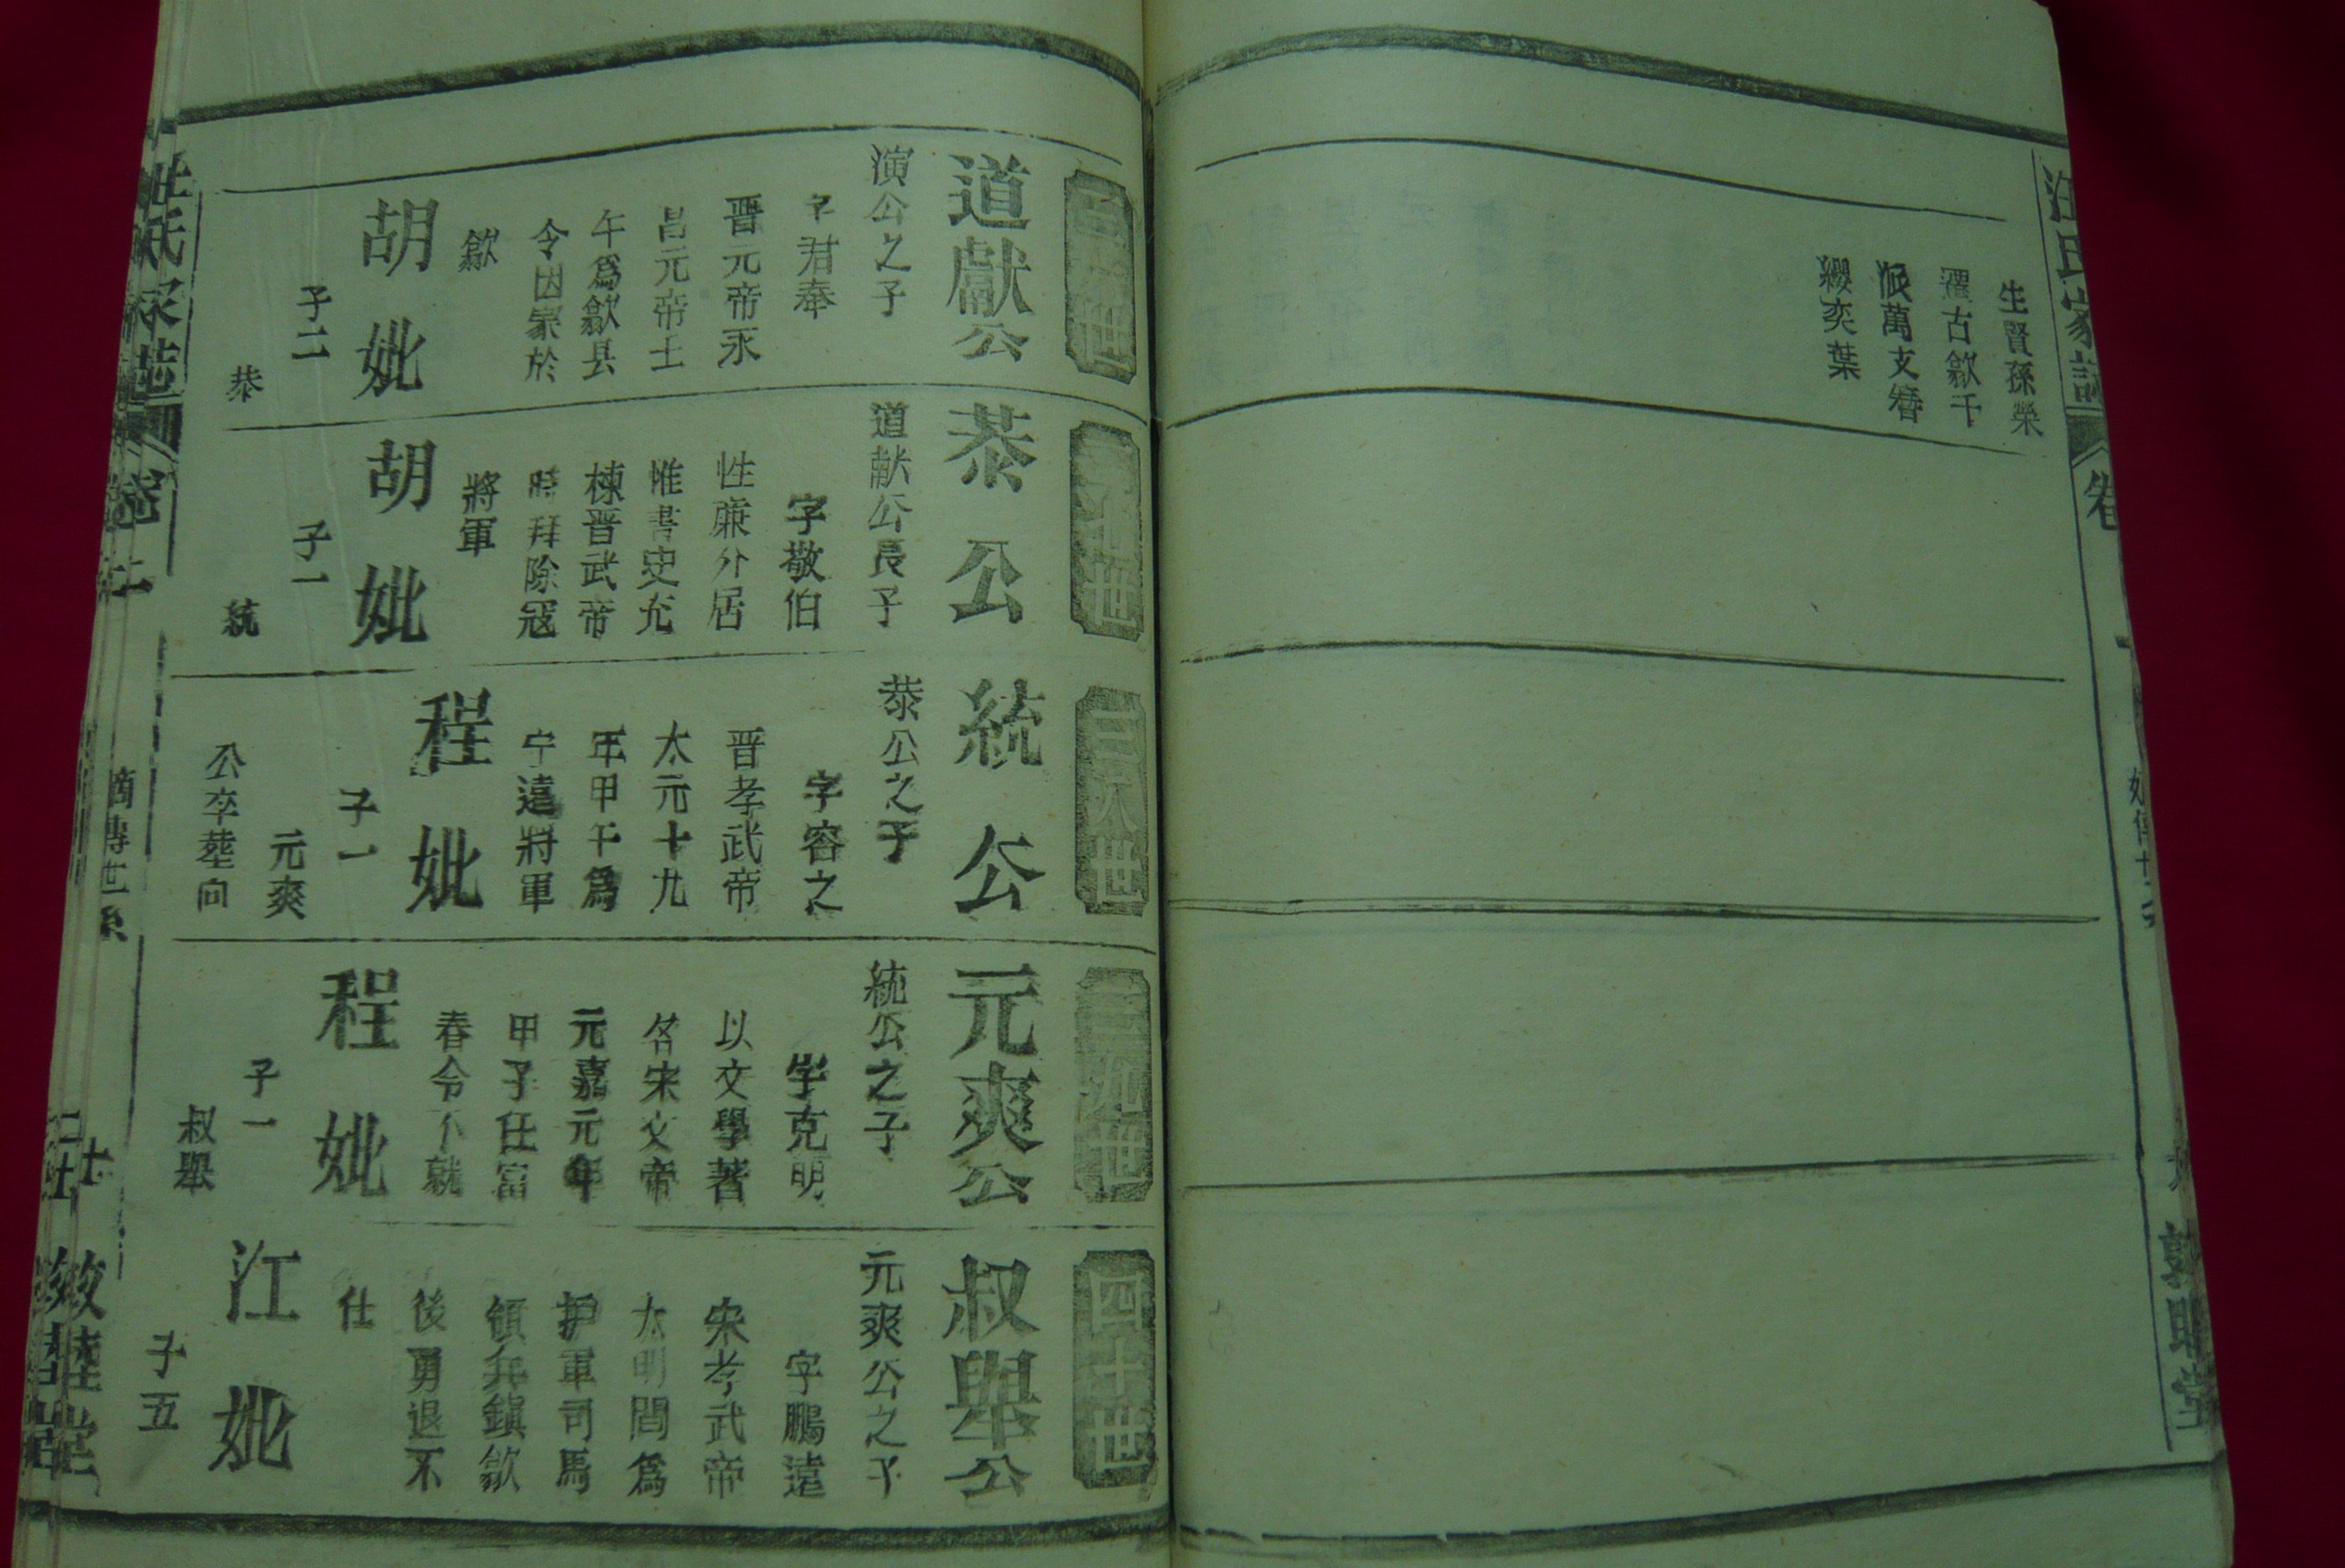 生賢孫榮
遷古歙千
派萬支簪
纓奕葉
汪氏家譜
卷
道獻公
演公之子
字君奉
晋元帝永
昌元帝壬
午爲歙县
令因家於
歙
胡妣
子二
㳟
㳟公
道献公長子
字敬伯
性廉介居
惟書史充
棟晋武帝
時拜除寇
將軍
胡妣
子一
統
三八世
統公
㳟公之子
字容之
晋孝武帝
太元十九
年甲午爲
宁遠將軍
程妣
子一
元爽
公卒葬向
三九世
元爽公
統公之子
字克明
以文學著
名宋文帝
元嘉元年
甲子任富
春令不就
程妣
子一
叔舉
四十世
叔舉公
元爽公之子
字鵬遠
宋孝武帝
太明間爲
护軍司馬
領兵鎮歙
後勇退不
仕
江妣
子五